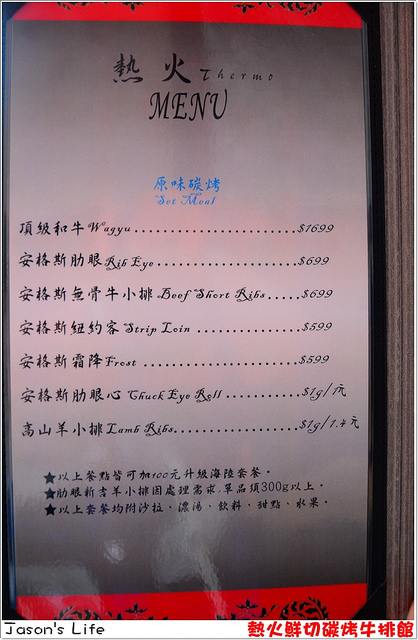 熱火Thermo
MENU
原味碳烤
Set Meal
頂級和牛Wagyu.......................$1699
安格斯肋眼Rib Eye....................$699
安格斯無骨牛小排.Beef Short Ribs.....$699
安格斯紐約客Strip Loin ...............$599
安格斯霜降Frost ......................$599
安格斯肋眼心 Chuck Eye Roll ...........$1g/1元
高山羊小排Lamb Ribs..................$1g/1.4元
★以上餐點皆可加100元升級海陸套餐。
★肋眼新者羊小排因處理需求,單品須300g以上。
★以上套餐均附沙拉、濃湯、飲料、甜點、水果。
Jason's Life
熱火鮮切碳烤牛排館